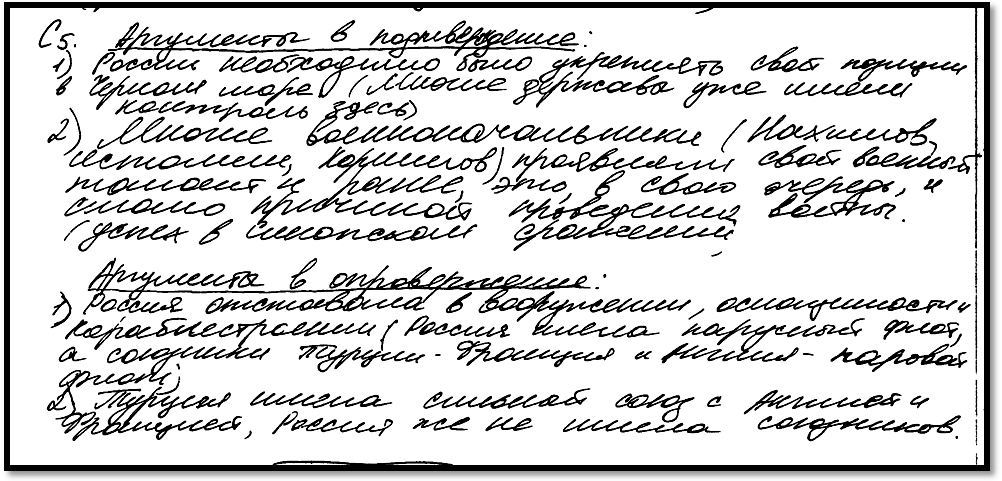 С5. Аргументы в подтверждение:
1) России необходимо было укреплять свои позиции
в Черном море (Многие державы уже имели
контроль здесь)
2) Многие военноначальники (Нахимов,
Истомин, Корнилов) проявляли свой военный
талант и ранее, это, в свою очередь, и
стало причиной проведения войны.
(успех в Синопском сражении)
Аргументы в опровержение:
1) Россия отставала в вооружении, оснащенности и
кораблестроении (Россия имела парусный флот,
а союзники Турции - Франция и Англия - паровой
флот)
2) Турция имела сильный союз с Англией и
Францией, Россия же не имела союзников.